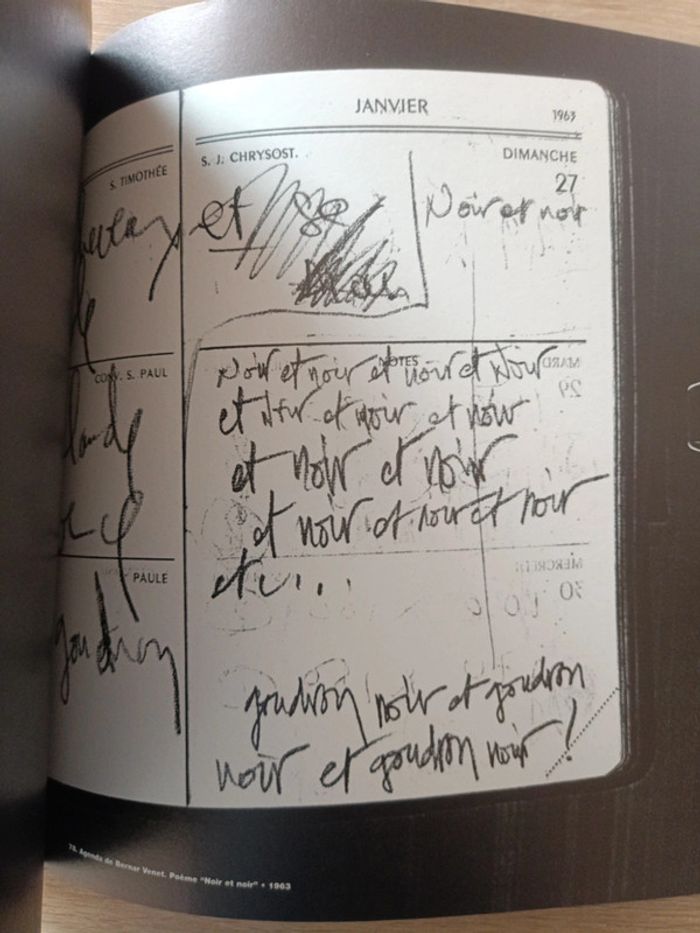 JANVIER
1963
S. TIMOTHÉE
S. J. CHRYSOST.
DIMANCHE
27
et se
Noir et noir
CONV. S. PAUL
NOTES
MARDI
29
Noir et noir et noir et Noir
et Noir et noir et noir
et noir et noir
et noir et noir et noir
etc...
MERCREDI
30
PAULE
goudron
goudron noir et goudron
noir et goudron noir !
78. Agenda de Bernar Venet. Poème "Noir et noir" • 1963